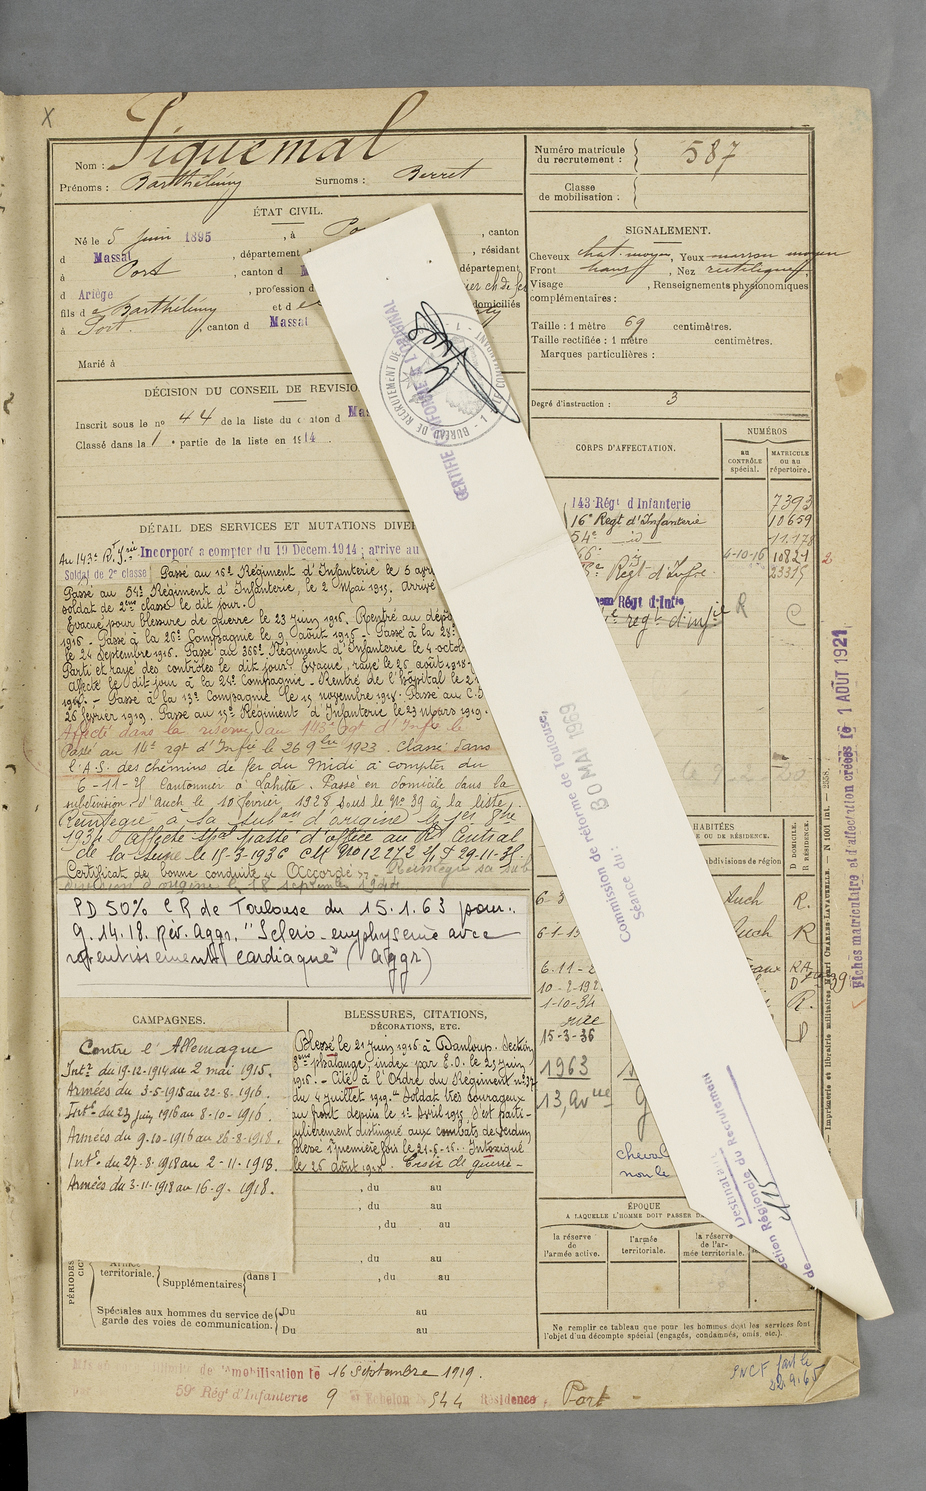 X
Nom : Piquemal
Prénoms : Barthélémy Surnoms : Berret
Numéro matricule du recrutement : 587
Classe de mobilisation :
ÉTAT CIVIL.
Né le 5 juin 1895, à Po , canton
d Massat, département d , résidant
à Port, canton d M , département
d Ariège, profession d er ch de fer
fils d e Barthélémy et d e domiciliés
à Port, canton d Massat
Marié à
SIGNALEMENT.
Cheveux chat. moyen, Yeux marron moyen
Front , Nez rectiligne
Visage , Renseignements physionomiques
complémentaires :
Taille : 1 mètre 69 centimètres.
Taille rectifiée : 1 mètre centimètres.
Marques particulières :
Degré d'instruction : 3
DÉCISION DU CONSEIL DE REVISIO
Inscrit sous le no 44 de la liste du canton d Mas
Classé dans la 1 e partie de la liste en 1914.
CORPS D'AFFECTATION.
NUMÉROS
au CONTRÔLE spécial.
MATRICULE ou au répertoire.
143 Régt d'Infanterie 7393
16e Regt d'Infanterie 10659
54e _id_ 11.178
66e id 4-10-16 10821 2
Regt d'Infre 23315
Régt d'Infie
regt d'infie R C
DÉTAIL DES SERVICES ET MUTATIONS DIVER
Au 143e Rt Infie Incorporé a compter du 19 Decem. 1914 ; arrive au
Soldat de 2e classe Passé au 16e Régiment d'Infanterie le 5 avr
Passé au 54e Régiment d'Infanterie, le 2 Mai 1915, Arrivé
soldat de 2me classe le dit jour.
Evacué pour blessure de guerre le 23 juin 1916. Rentré au dépô
1916 - Passé à la 26e Compagnie le 9 août 1916 - Passé à la 28e
le 24 Septembre 1916. Passé au 366e Régiment d'Infanterie le 4 octob
Parti et rayé des contrôles le dit jour. Evacué, rayé le 26 août 1918-
Affecté le dit jour à la 24e Compagnie - Rentré de l'hôpital le 2
1918. - Passé à la 13e Compagnie le 15 novembre 1918. Passé au C.
26 février 1919. Passé au 15e Régiment d'Infanterie le 23 Mars 1919.
Affecté dans la réserve au 143e Rgt d'Infie le
Passé au 14e rgt d'Infie le 26 9bre 1923. Classé dans
l'A.S. des chemins de fer du Midi à compter du
6-11-25 Cantonnier à Lahitte. Passé en domicile dans la
subdivision d'Auch le 10 février 1928 sous le No 39 à la liste.
Réintégré à sa subon d'origine le 1er 8bre
1934. Affecté spal passé d'office au Rt Central
de la subon le 15-3-1936 CM No 12272 du 29-11-35
Certificat de bonne conduite "Accordé". Réintégré sa sub
division d'origine le 18 septembre 1944
le 9-2-20
PD 50% CR de Toulouse du 15.1.63 pour.
g. 14.18. Rév. Aggr. "Scléro-emphysème avec
retentissement cardiaque" (Aggr)
CERTIFIÉ CONFORME A L'ORIGINAL
BUREAU DE RECRUTEMENT DE
LE COMMANDANT
Commission de réforme de Toulouse,
Séance du : 30 MAI 1969
Destinataire : Recrutement
ection Régionale du
de
HABITÉES
OU DE RÉSIDENCE.
ubdivisions de région
D DOMICILE. R RÉSIDENCE.
6-3 Auch R.
6-1-13 Auch R
6-11-2 aux RA
10-2-192 D No 39
1-10-34 R.
15-3-36 D
1963
13, Avnue
cheval
non le
CAMPAGNES.
Contre l'Allemagne
Intre du 19-12-1914 au 2 mai 1915.
Armées du 3-5-1915 au 22-6-1916.
Intre du 23 juin 1916 au 8-10-1916.
Armées du 9-10-1916 au 26-8-1918.
Intre du 27-8-1918 au 2-11-1918.
Armées du 3-11-1918 au 16-9-1918.
BLESSURES, CITATIONS,
DÉCORATIONS, ETC.
Blessé le 21 juin 1916 à Damloup. Section
3eme phalange, index par E.O. le 23 juin
1916. - Cité à l'Ordre du Régiment no 37
du 4 juillet 1919. "Soldat très courageux
au front depuis le 1er Avril 1915 s'est parti-
culièrement distingué aux combats de Verdun,
blessé 1 première fois le 21-6-16. Intoxiqué
le 26 Août 1918. Croix de guerre -
, du au
, du au
, du au
du au
, du au
PÉRIODES
Armée territoriale. Supplémentaires (dans l
Spéciales aux hommes du service de garde des voies de communication. Du au
Du au
ÉPOQUE
A LAQUELLE L'HOMME DOIT PASSER D
la réserve de l'armée active.
l'armée territoriale.
la réserve de l'armée territoriale.
Ne remplir ce tableau que pour les hommes dont les services font
l'objet d'un décompte spécial (engagés, condamnés, omis, etc.).
Fiches matriculaire et d'affectation créées le 1 AOÛT 1921
Imprimerie et librairie militaires Henri CHARLES-LAVAUZELLE. — N 1001 int. — 2558.
Mis en illimité de démobilisation le 16 Septembre 1919.
59e Rég' d'Infanterie 9 e Echelon No 544 Résidence, Port
SNCF fait le
22.9.65